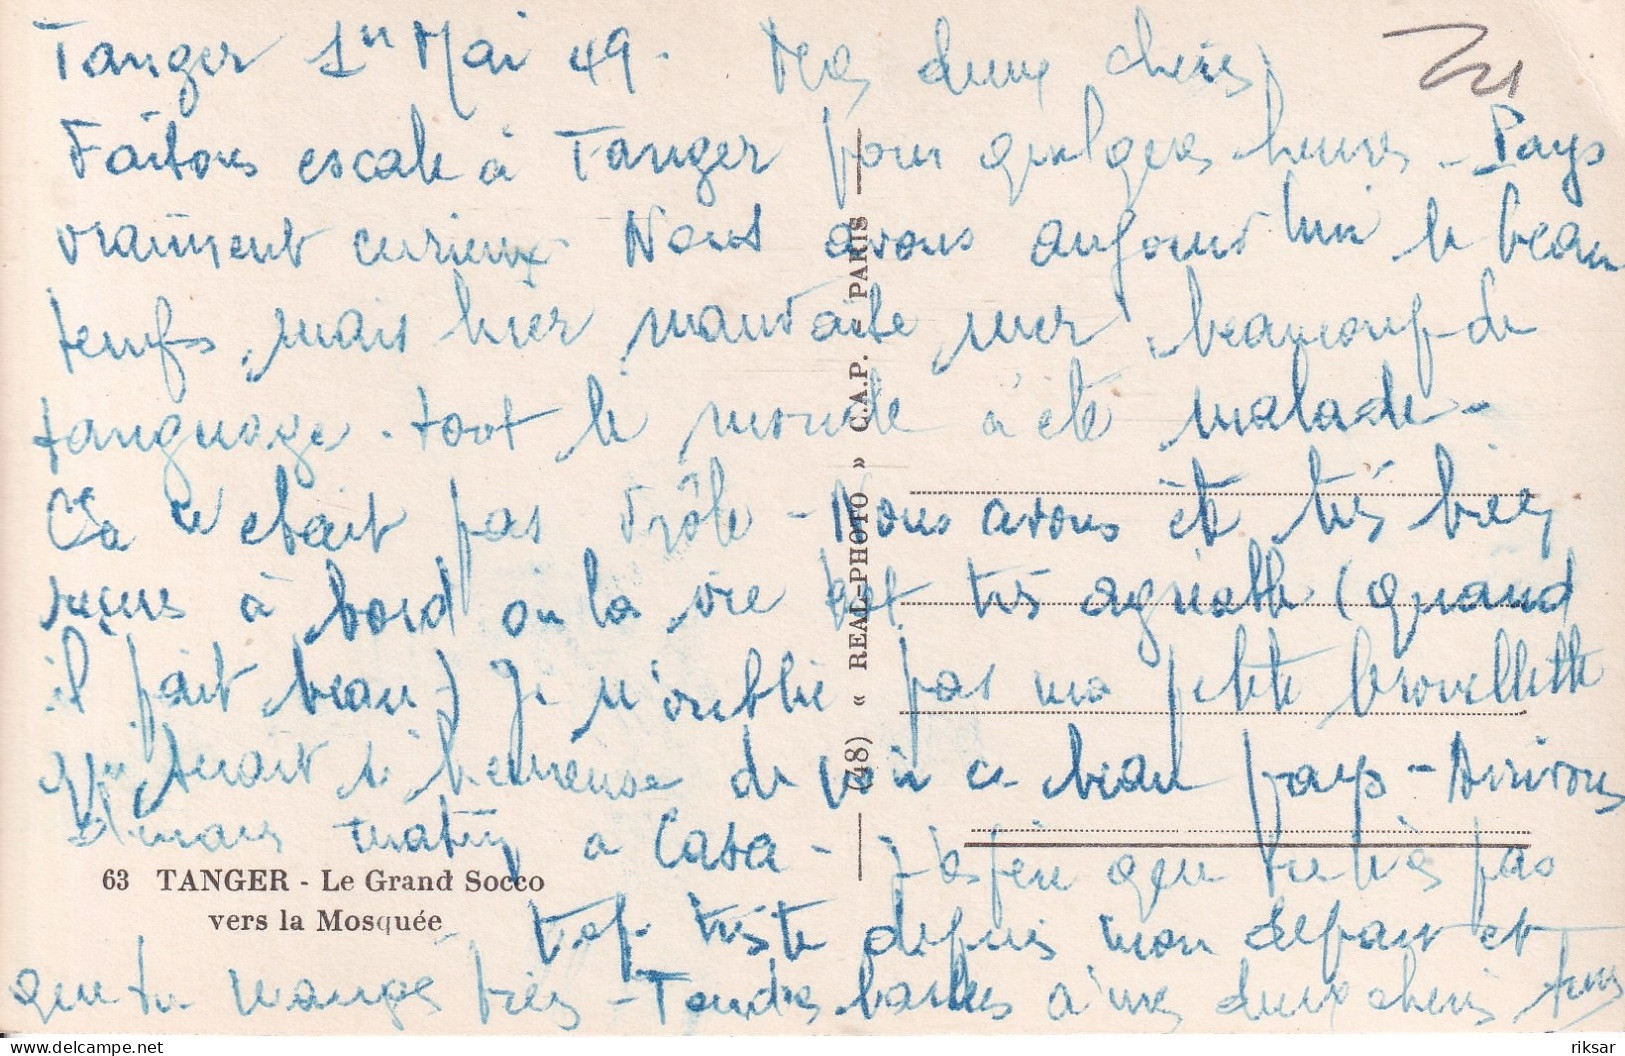 Tanger 1er Mai 49. Mes deux chéris,
Faisons escale à Tanger pour quelques heures - Pays
vraiment curieux Nous avons aujourd'hui le beau
temps, mais hier mauvaise mer, beaucoup de
tanguage. tout le monde à été malade -
Ça ne était pas drôle - Nous avons été très bien
reçus à bord ou la vie est très agréable (quand
il fait beau) Je n'oublie pas ma petite
qui serait si heureuse de voir ce beau pays - Arrivons
demain matin a Casa - j'espère que tu n'es pas
63 TANGER - Le Grand Socco
vers la Mosquée
trop triste depuis mon départ et
que tu manges bien - Tendres baisers à mes deux chéris
(48) « REAL-PHOTO » C.A.P. - PARIS
riksar